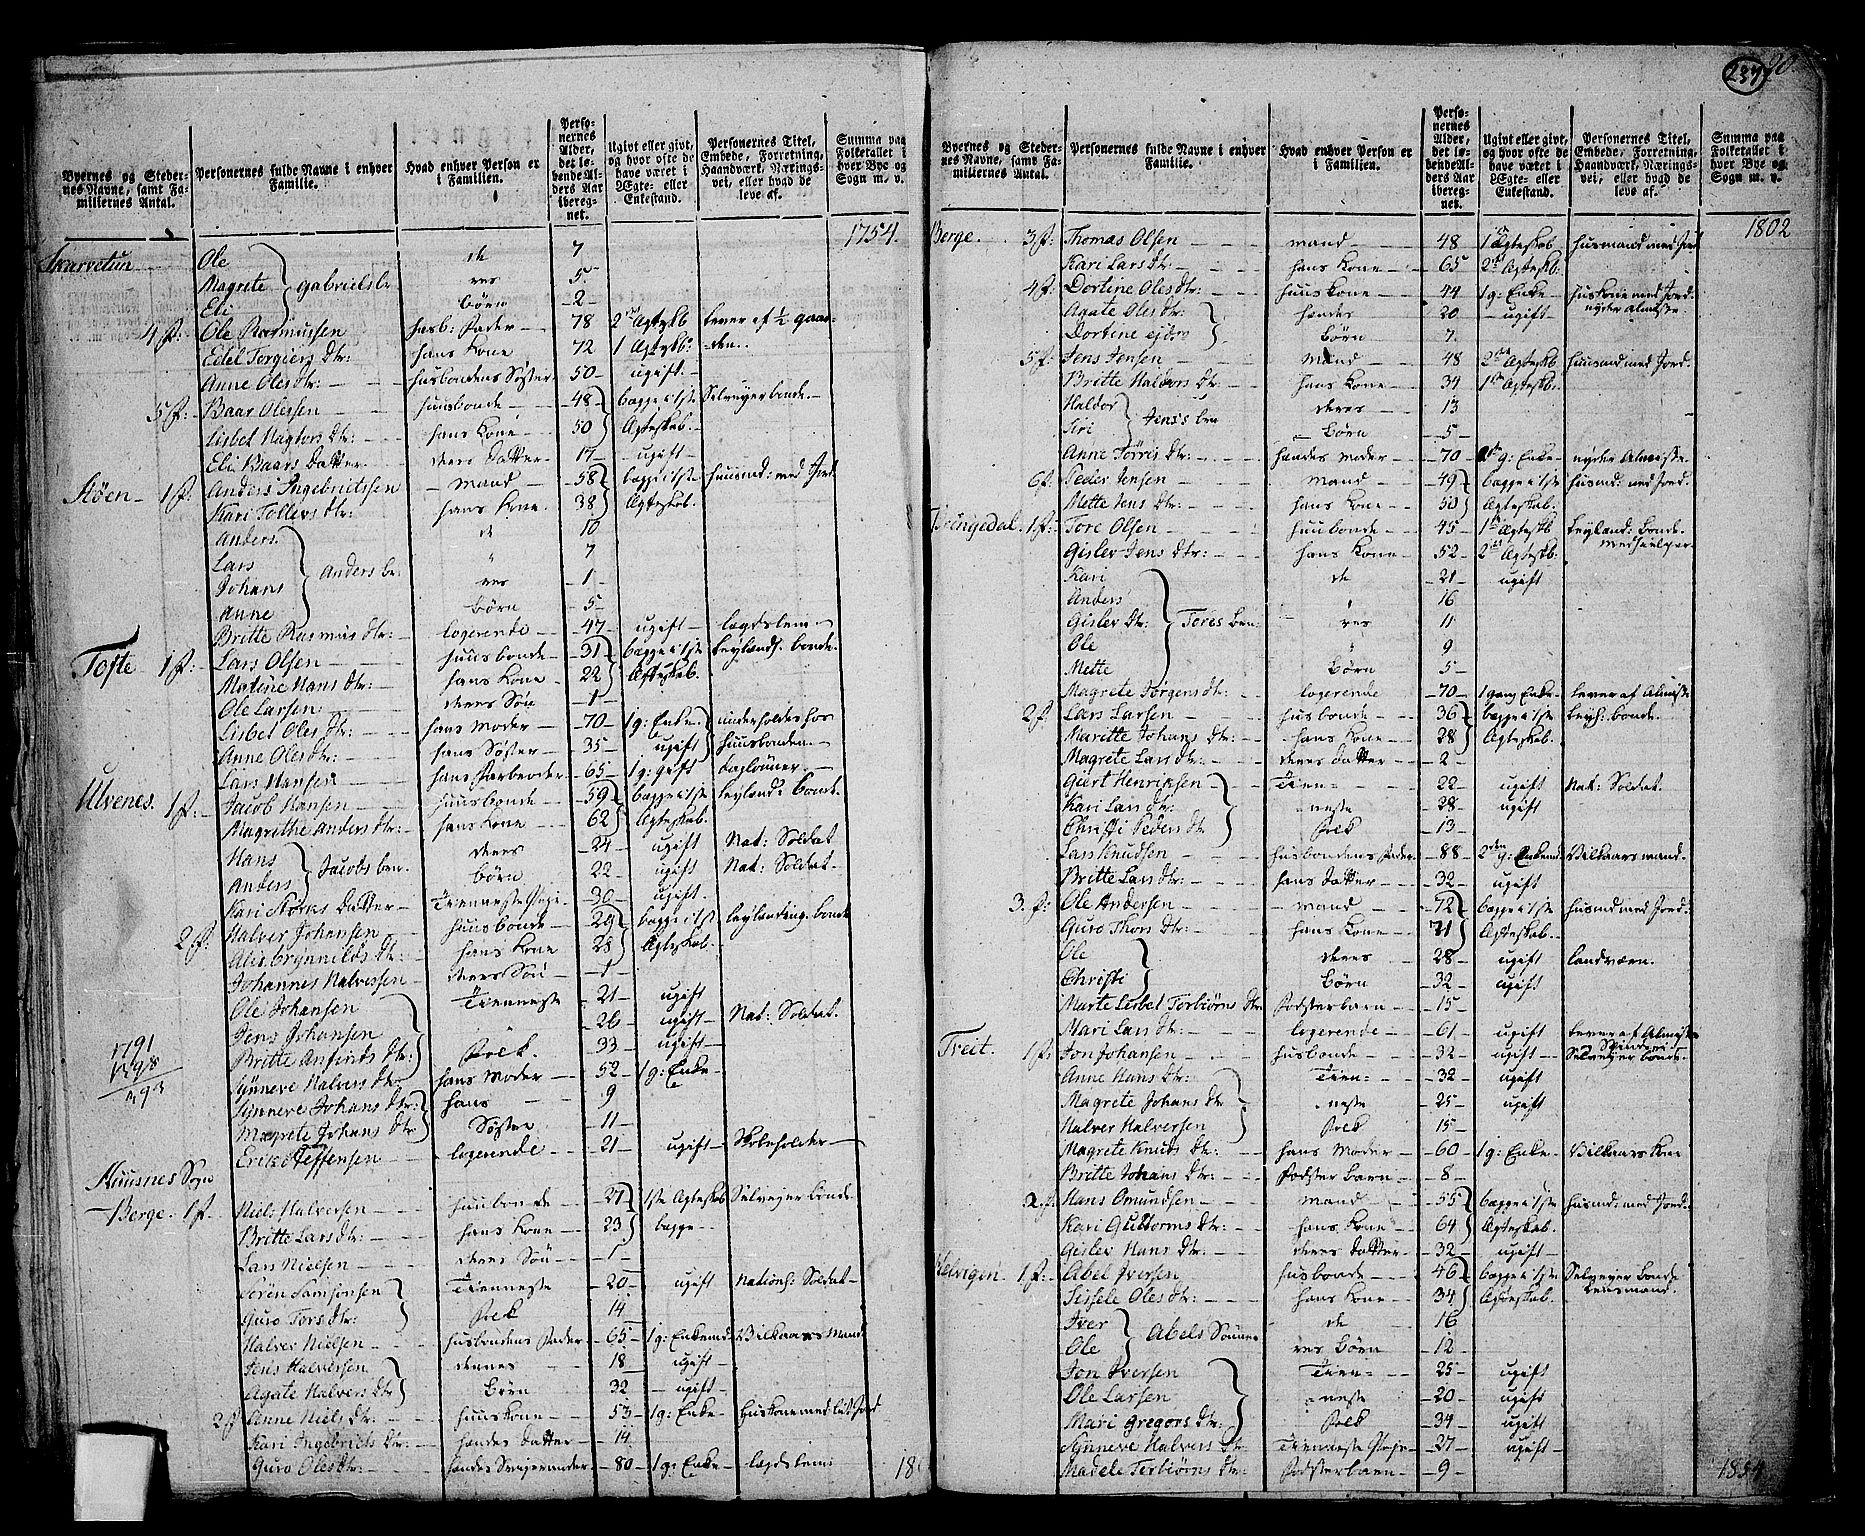 237
90.
Byernes og Stedernes Navne, samt Familiernes Antal.
Personernes fulde Navne i enhver Familie.
Hvad enhver Person er i Familien.
Personernes Alder, det løbende Alders Aar iberegnet.
Ugivt eller givt, og hvor ofte de have været i Ægte- eller Enkestand.
Personernes Titel, Embede, Forretning, Haandværk, Næringsvei, eller hvad de leve af.
Summa paa Folketallet i hver Bye og Sogn m. v.
1754.
Skarvetun Ole de 7
Magrete Gabriels res 5
Eli børn 2
4 f: Ole Rasmussen husb: Fader 78 2 Ægteskb lever af ½ gaar-
Edel Torgiers Dtr: hans Kone 72 1 Ægteskb: den.
Anne Oles dtr: husbondens Søster 50 ugift
5 f: Baar Olessen huusbonde 48 begge i 1ste Selveyer bonde
Lisbet Dtr: hans Kone 50 Ægteskab.
Eli Baars Datter deres Datter 17 ugift
Støen 1 f: Anders Ingebritsen Mand 58 begge i 1ste huusmd: med Jord
Kari Tollevs dtr: hans Kone 38 Ægteskab.
Anders de 10
Lars 7
Johans Anders res 1
Anne børn 5
Britte Rasmus dtr: logerende 47 ugift lægdslem
Tofte 1 f: Lars Olsen huusbonde 31 begge i 1ste leylænd: bonde.
Madene Hans dtr: hans Kone 22 Ægteskab.
Ole Larsen deres Søn 1
Lisbet Oles Dtr: hans Moder 70 1 g: Enke underholdes hos
Anne Oles dtr: hans Søster 35 ugift huusbonden
Lars Hansen hans Farbroder 65 1 g: gift daglønner
Ulvenes. 1 f: Jacob Hansen huusbonde 59 begge i 1ste leylænd: bonde
Magrethe Anders dtr: hans Kone 62 Ægteskab.
Hans deres 24 ugift Nat: Soldat
Anders Jacobs børn 22 ugift Nat: Soldat
Kari Størks Datter Tienneste Pige 30 ugift.
2 f: Halver Johansen huusbonde 29 begge i 1ste leylænding: bonde
Alis Brynnilds Dtr: hans Kone 28 Ægteskab.
Johannes Halversen deres Søn 1
Ole Johansen Tienneste 21 ugift
Jens Johansen 26 ugift Nat: Soldat.
Britte Anfinds Dtr: Folk. 33 ugift
Synneve Halvers Dtr: hans Moder 52 1 g: Enke
Synneve Johans Dtr: hans 9
Magrete Johans Dtr Søstre 11
Erik Steffensen logerende 21 ugift Skoleholder
1791
1798
Huusnes Sogn
Berge. 1 f. Niels Halversen huusbonde 27 1ste Ægteskab Selveyer bonde
Britte Lars dtr: hans Kone 23 begge
Lars Nielsen deres Søn 1
Søren Samsonsen Tienneste 20 ugift National: Soldat
Guro Tors dtr: Folk 14
Halver Nielsen husbondens Fader 65 1 g: Enkemd: Vilkaars Mand
Jens Halversen dennes 18 ugift
Agate Halvers Dtr børn 32 ugift
2 f Anne Niels Dtr: huuskone 53 1 g: Enke huskone med lidt Jord
Kari Ingebricts dtr: hendes Datter 14
Guro Oles dtr: hendes 80 1 g: Enke lægdslem
Byernes og Stedernes Navne, samt Familiernes Antal.
Personernes fulde Navne i enhver Familie.
Hvad enhver Person er i Familien.
Personernes Alder, det løbende Alders Aar iberegnet.
Ugivt eller givt, og hvor ofte de have været i Ægte- eller Enkestand.
Personernes Titel, Embede, Forretning, Haandværk, Næringsvei, eller hvad de leve af.
Summa paa Folketallet i hver Bye og Sogn m. v.
1802
Berge. 3 f: Thomas Olsen mand 48 1 Ægteskab husmand med Jord
Kari Lars dtr: hans Kone 65 2 Ægteskb:
4 f: Dortine Oles dtr: huus kone 44 1 g: Enke huskone med Jord.
Agate Oles dtr: hendes 20 ugift nyder Almisse.
Dortine børn 7.
5 f: Jens Jensen Mand 48 2 Ægteskb husmd med Jord.
Britte Haldors Dtr: hans Kone 34 1 Ægteskb:
Haldor deres 13
Siri Jens's børn 5
Anne Tørris Dtr: hendes Moder 70 g: Enke nyder Almisse.
6 f: Peder Jensen mand 49 begge i 1ste husmd: med Jord.
Mette Jens Dtr: hans Kone 50 Ægteskab.
1 f: Tore Olsen huusbonde 45 1 Ægteskb leylænd: bonde.
Gisler Jens Dtr: hans Kone 52 2 Ægteskb: medhielper
Kari de 21 ugift
Anders 16
Gisler Dtr: Tores res 11
Ole 9
Mette børn 5
Magrete Jørgens dtr: logerende 70 1 gang Enke lever af Almisse
2 f. Lars Larsen husbonde 36 begge i 1ste leyl: bonde.
Maritte Johans Dtr: hans Kone 28 Ægteskab.
Magrete Lars dtr: deres Datter 2
Giert Henriksen Tien= 22 ugift Nat: Soldat.
Kari Lars dtr: neste 28 ugift
Christi Peders dtr Folk 13
Lars Knudsen husbondens Fader 88 2den g: Enkemd Vilkaars mand.
Britte Lars dtr: hans Datter 32 ugift
3. f: Ole Andersen mand 72 begge i 1ste husmd med Jord:
Guro Thors Dtr: hans Kone 71 Ægteskab.
Ole deres 28 ugift Landværn.
Christi børn 32 ugift
Marte Lisbet Torbiørns Dtr Fosterbarn 15
Mari Lars dtr: logerende 61 ugift lever af Almisse
Treit. 1 f: Jon Johansen husbonde 32 ugift Selveyer bonde
Anne Hans Dtr: Tien= 32 ugift
Magrete Johans Dtr neste 25 ugift
Halver Halversen Folk 15
Magrete Knuds Dtr: hans Moder 60 1 g: Enke Vilkaars Kone
Britte Johans Dtr: Fosterbarn 8
2 f: Hans Omundsen mand 55 begge i 1ste husmd: med Jord.
Kari Guttorms Dtr: hans Kone 64 Ægteskab.
Gisler Hans Dtr: deres Datter 32 ugift
1 f: Abel Iversen husbonde 46 begge i 1ste Selveyer bonde
Sissele Oles dtr: hans Kone 34 Ægteskab. Lensmand.
Iver de 16
Ole Abels Sønner res børn 12
Jon Iversen Tien= 25 ugift
Ole Larsen neste 20 ugift
Mari Gregors Dtr: Folk 34 ugift
Synneve Halvers Dtr: Tienneste Pige 27 ugift
Madele Torbiørns Dtr: Fosterbarn 9